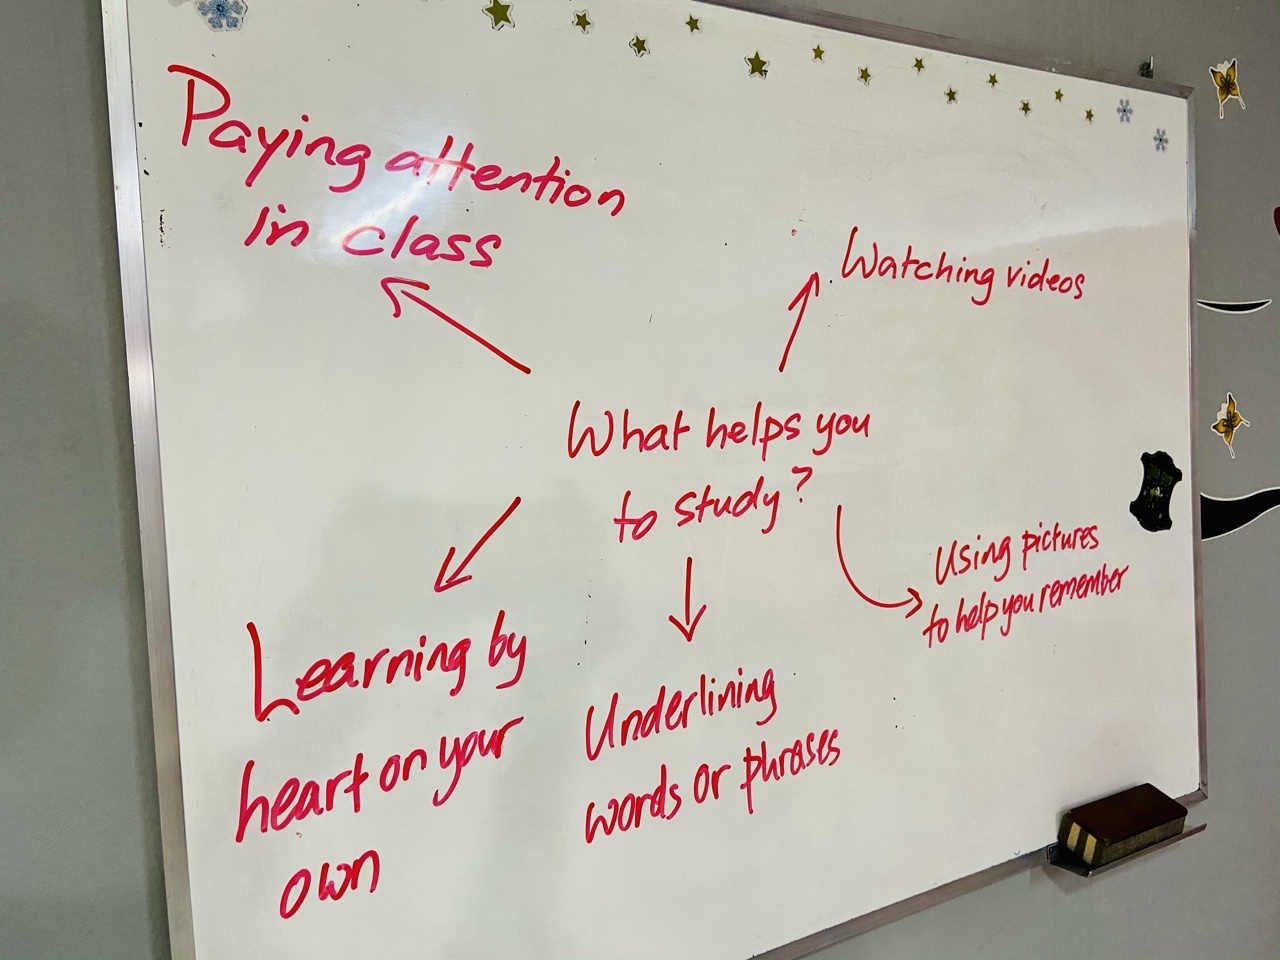 Paying attention
in class
Watching videos
What helps you
to study?
Using pictures
to help you remember
Learning by
heart on your
own
Underlining
words or phrases